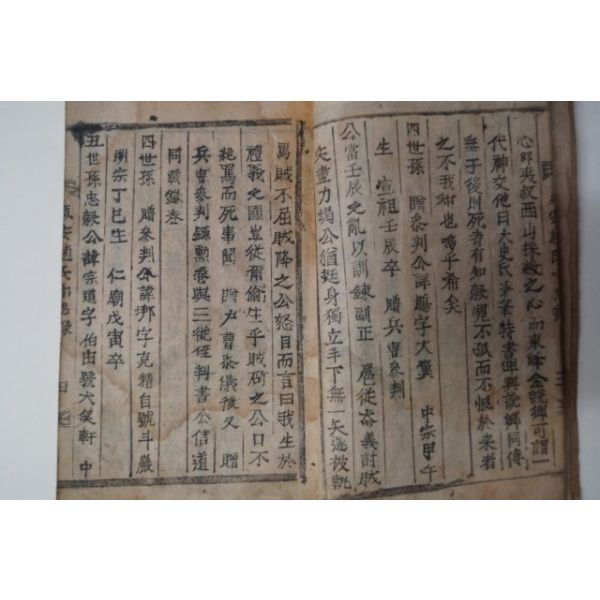 心即夷叔西山採薇之心而東峰金說卿可謂
代神交他日大史氏淨筆特書俾與說卿同傳
無乎後則死者有知寂寬不孤而不恨於來者
之不我知也嗚乎希矣
四世孫 贈參判公諱鵬字大翼 中宗甲午
生 宣祖壬辰卒 贈兵曹參判
公當壬辰之亂以訓鍊副正 扈從奮義討賊
矢盡力竭公猶挺身獨立手下無一矢遂被執
罵賊不屈賊降之公怒目而言曰我生於
禮義之國豈從爾偷生乎賊斫之公口不
絕罵而死事聞 贈戶曹參議後又 贈
兵曹參判錄勳卷與三從侄判書公信道
同貢錄卷
四世孫 贈參判公諱淜字克精自號斗巖
明宗丁巳生 仁廟戊寅卒
五世孫忠毅公諱宗道字伯由號大笑軒 中
四